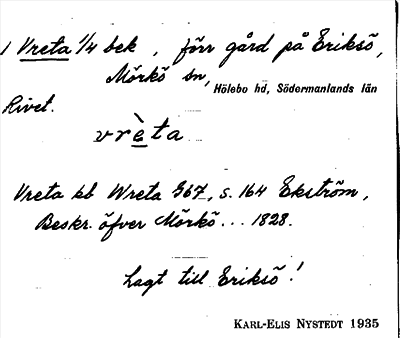 1 Vreta 1/4 bek, förr gård på Eriksö,
Mörkö sn,
Hölebo hd, Södermanlands län
Rivet.
vrèta
Vreta kb Wreta 967, s. 164 Ekström,
Beskr. öfver Mörkö... 1828.
Lagt till Eriksö!
KARL-ELIS NYSTEDT 1935